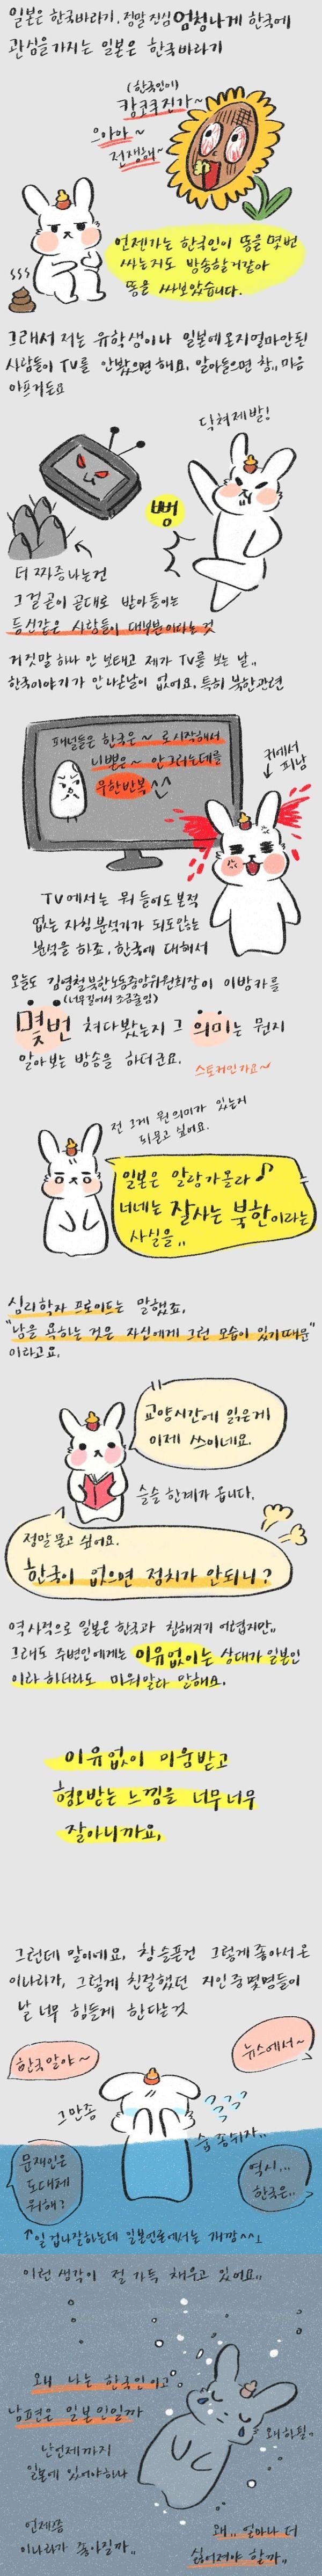 일본은 한국바라기. 정말 진심 엄청나게 한국에
관심을 가지는 일본은 한국바라기
(한국인이)
캉코쿠진가~
으아아~
전쟁해~
언젠가는 한국인이 똥을 몇번
싸는지도 방송할거같아
똥을 싸보았습니다.
그래서 저는 유학생이나 일본에 온지 얼마안된
사람들이 TV를 안봤으면 해요. 알아들으면 참,, 마음
아프거든요
닥쳐제발!
뻥
더 짜증나는건
그걸 곧이 곧대로 받아들이는
등신같은 사람들이 대부분이라는것
거짓말 하나 안 보태고 제가 TV를 보는 날,,
한국이야기가 안나온날이 없어요. 특히 북한관련
패널들은 한국은~ 로 시작해서
니뽄은~ 안그러는데를
무한반복^^
귀에서
피남
TV에서는 뭐 들어도 본적
없는 자칭분석가가 되도않는
분석을 하죠. 한국에 대해서
오늘도 김영철 북한노동중앙위원회장이 이방카를
(너무길어서 조금줄임)
몇번 쳐다봤는지 그 의미는 뭔지
알아보는 방송을 하더군요.
스토커인가요~
전 그게 뭔 의미가 있는지
되묻고 싶어요.
일본은 알랑가몰라♪
너네는 잘사는 북한이라는
사실을,,
심리학자 프로이트는 말했죠.
"남을 욕하는 것은 자신에게 그런 모습이 있기때문"
이라고요.
교양시간에 읽은게
이제 쓰이네요.
슬슬 한계가 옵니다.
정말 묻고 싶어요.
한국이 없으면 정치가 안되니?
역사적으로 일본은 한국과 친해지기 어렵지만,,
그래도 주변인에게는 이유없이는 상대가 일본인
이라 하더라도 미워말라 말해요.
이유없이 미움받고
혐오받는 느낌을 너무너무
잘아니까요,
그런데 말이에요. 참 슬픈건 그렇게 좋아서 온
이나라가, 그렇게 친절했던 지인 중 몇명들이
날 너무 힘들게 한다는것
한국말야~
뉴스에서~
그만좀
숨 좀쉬자..
문재인은
도대체
뭐해?
역시...
한국은..
↑일 겁나잘하는데 일본언론에서는 개깜^^ㅗ
이런 생각이 절 가득 채우고 있어요,,
왜 나는 한국인이고
남편은 일본인일까
왜하필,,
난언제까지
일본에 있어야하나
언제쯤
이나라가 좋아질까,,
왜,, 얼마나 더
싫어져야 할까,,